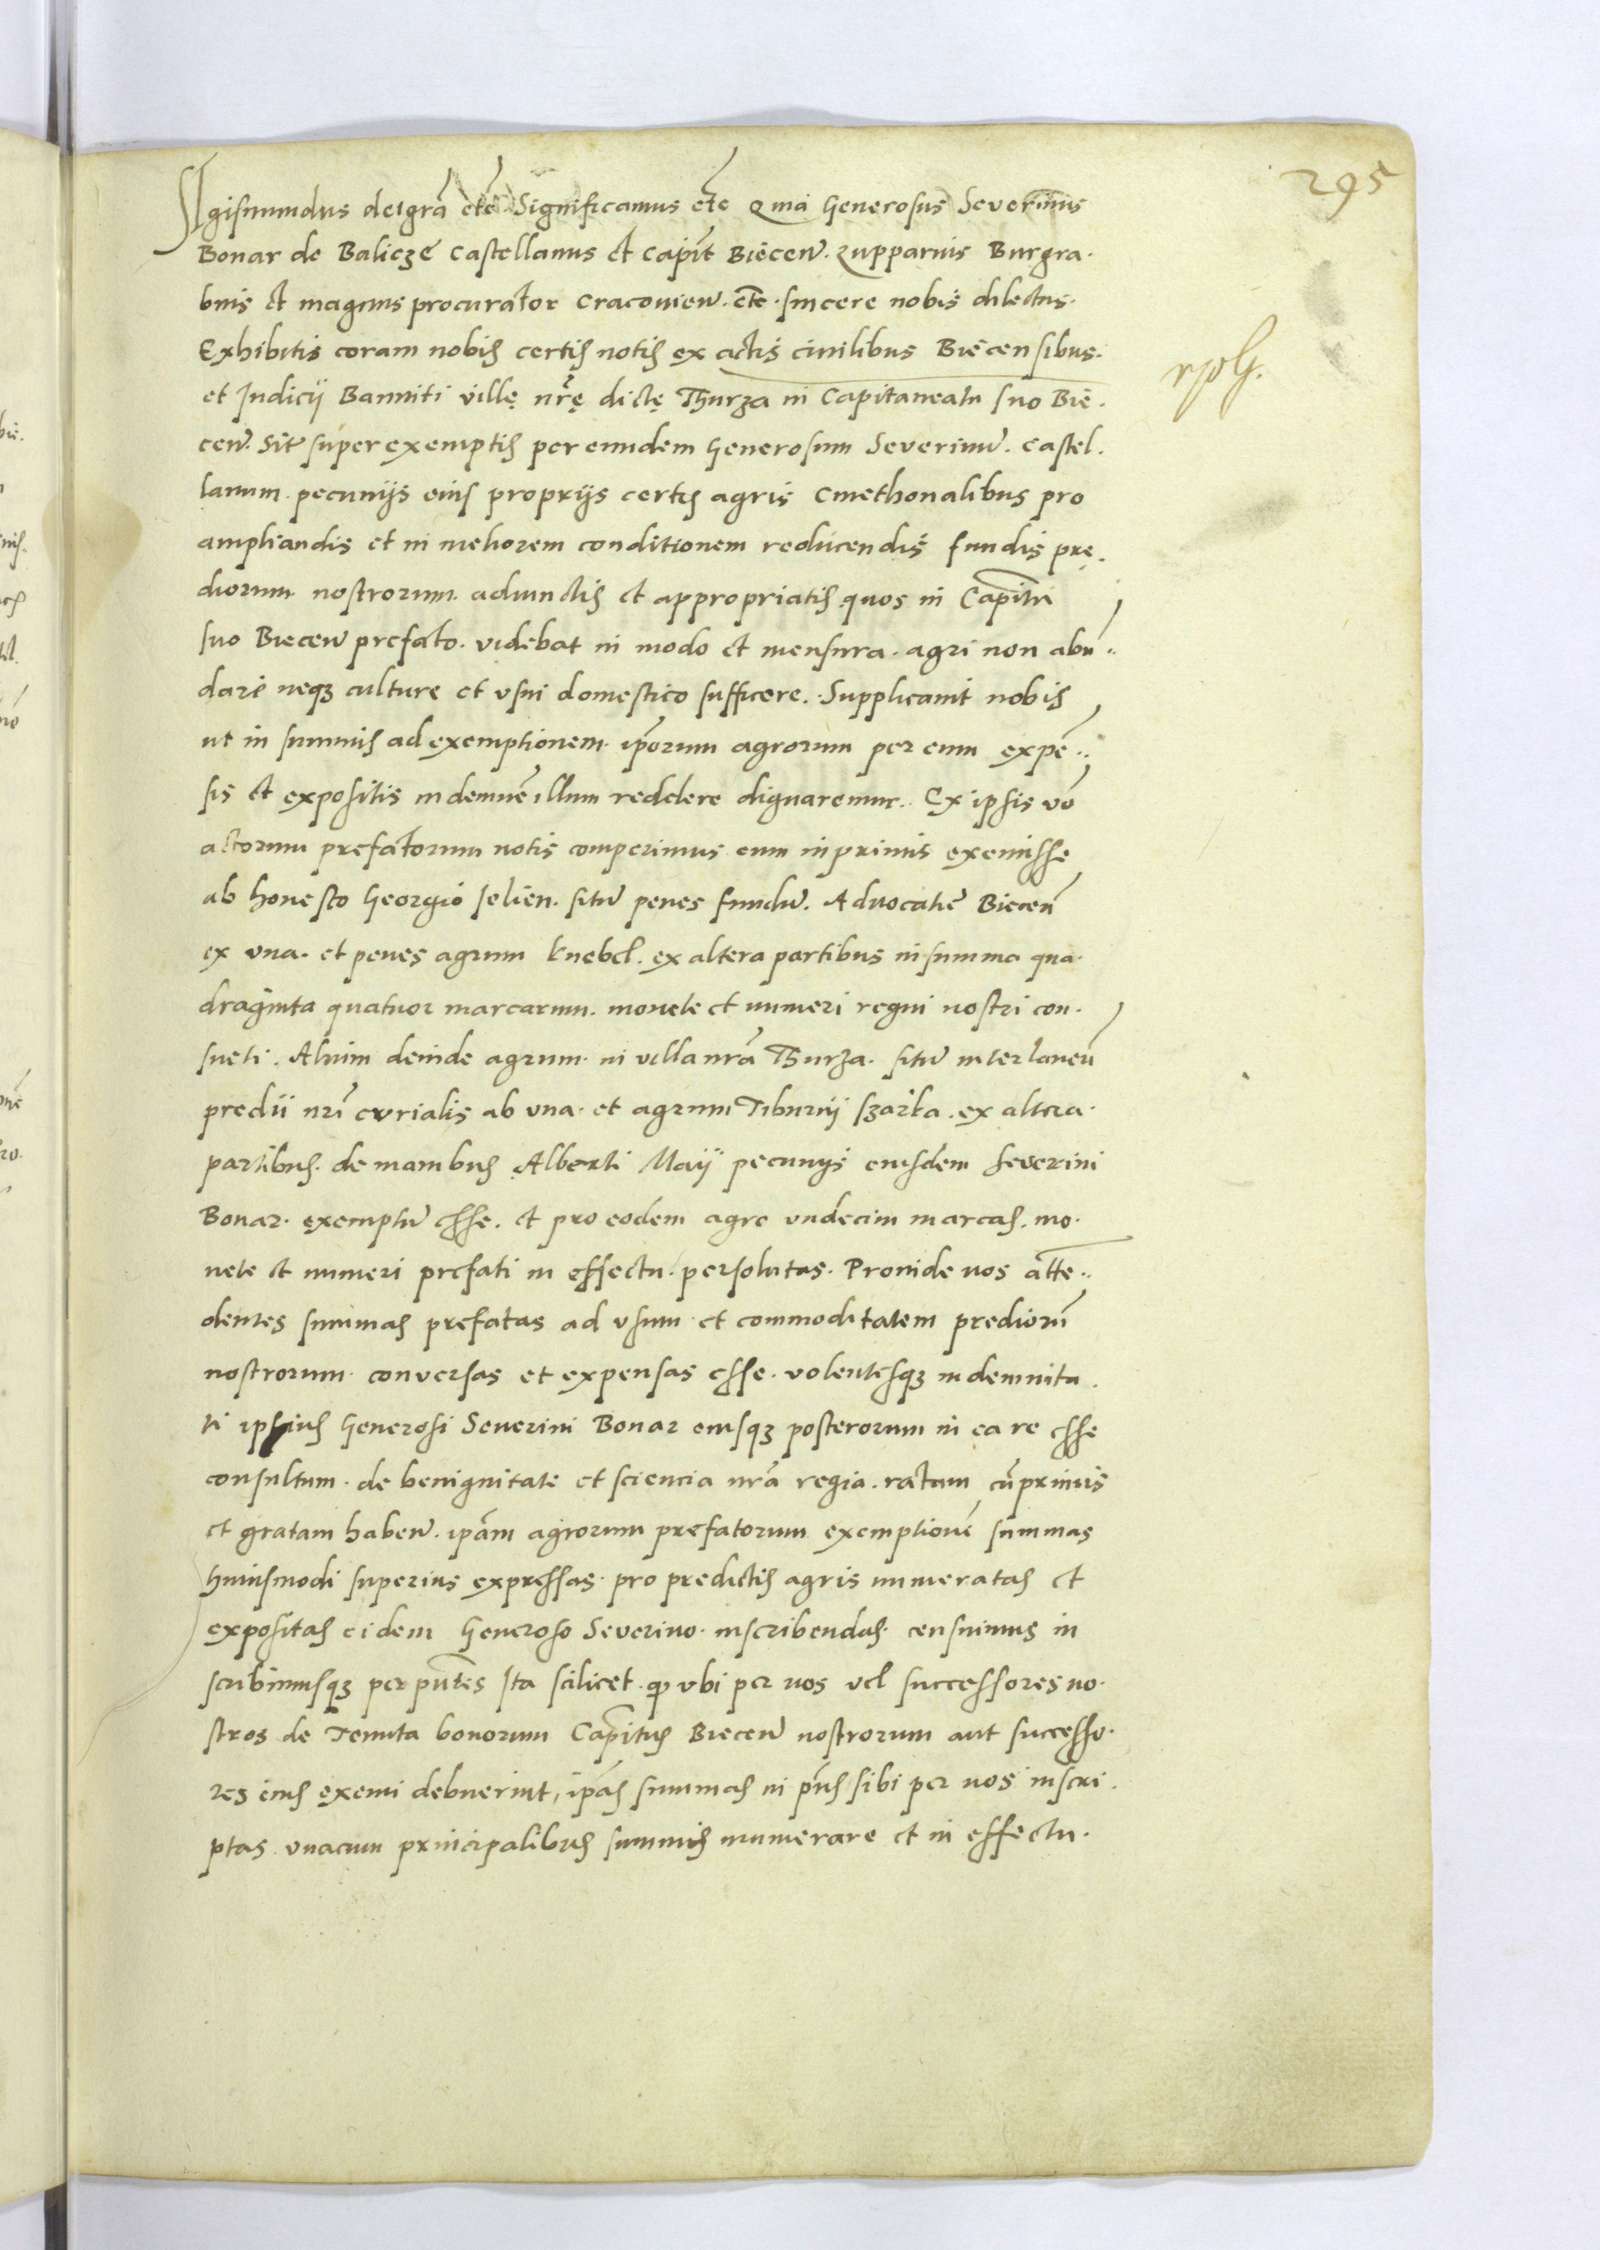 295
Sigismundus dei gra etc Significamus etc Quia Generosus Severinus
Bonar de Balicze Castellanus et Capit Biecen. Zupparius Burgra.
bius et magnus procurator Cracovien. etc. sincere nobis dilectus.
Exhibitis coram nobis certis notis ex actis civilibus Biecensibus.
et Iudicii Banniti villę nrę dictę Thurza in Capitaneatu suo Bie.
cen. super exemptis per eundem Generosum Severinu. Castel.
lanum. pecuniis eius propriis certis agris Cmethonalibus pro
ampliandis et in meliorem conditionem reducendis fundis prę.
diorum nostrorum. adiunctis et appropriatis quos in Capitu
suo Biecen prefato. videbat in modo et mensura. agri non abu..
dare neqz culture et usui domestico sufficere. Supplicavit nobis
ut in summis ad exemptionem ipsorum agrorum per eum expe..
sis et expositis indemne illum reddere dignaremur. Ex ipsis vo
actorum prefatorum notis comperimus eum inprimis exemisse
ab honesto Georgio Ielien. situ penes fundu. Advocatie Biecen
ex una. et penes agrum Knebel. ex altera partibus in summa qua.
draginta quatuor marcarum. monete et numeri regni nostri con.
sueti. Alium deinde agrum. in villa nra Thurza. situ inter laneu
predii nri curialis ab una. et agrum Tiburcii Szarka. ex altera.
partibus. de manibus Alberti Maij pecuniis eiusdem Severini
Bonar. exemptu esse. et pro eodem agro undecim marcas. mo.
nete et numeri prefati in effectu. persolutas. Proinde nos atte..
dentes summas prefatas ad usum et commoditatem prediorum
nostrorum. conversas et expensas esse. volentesqz indemnita.
ti ipsius Generosi Severini Bonar eiusqz posterorum in ea re esse
consultum. de benignitate et sciencia nra regia. ratam cuprimis
et gratam haben. ipam agrorum prefatorum exemptione summas
huiusmodi superius expressas. pro predictis agris numeratas et
expositas eidem Generoso Severino. inscribendas. censuimus in
scribimusqz per pntes Ita scilicet. qz ubi per nos vel successores no.
stros de Tenuta bonorum Capitus Biecen nostrorum aut successo.
res eius exemi debuerint, ipas summas in pntis sibi per nos inscri.
ptas. unacum principalibus summis numerare et in effectu.